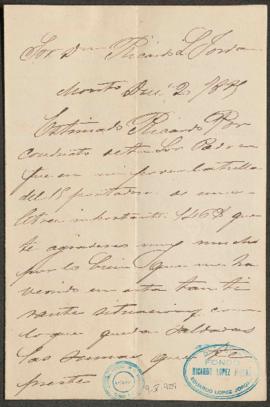 Sor Dn Ricardo L Jordan
Monto Dbe 2/885
Estimado Ricardo Por
conducto del Sor
que en mi poder
del 18 portadora de una
letra importante $468 que
te agradesco muy mucho
por lo bien que me ha
venido en esta tan ti
rante situacion y con
lo que quedan saldadas
las sumas que te
preste
FONDO
RICARDO LOPEZ JORDAN
EDUARDO LOPEZ JORDAN
9.3.929